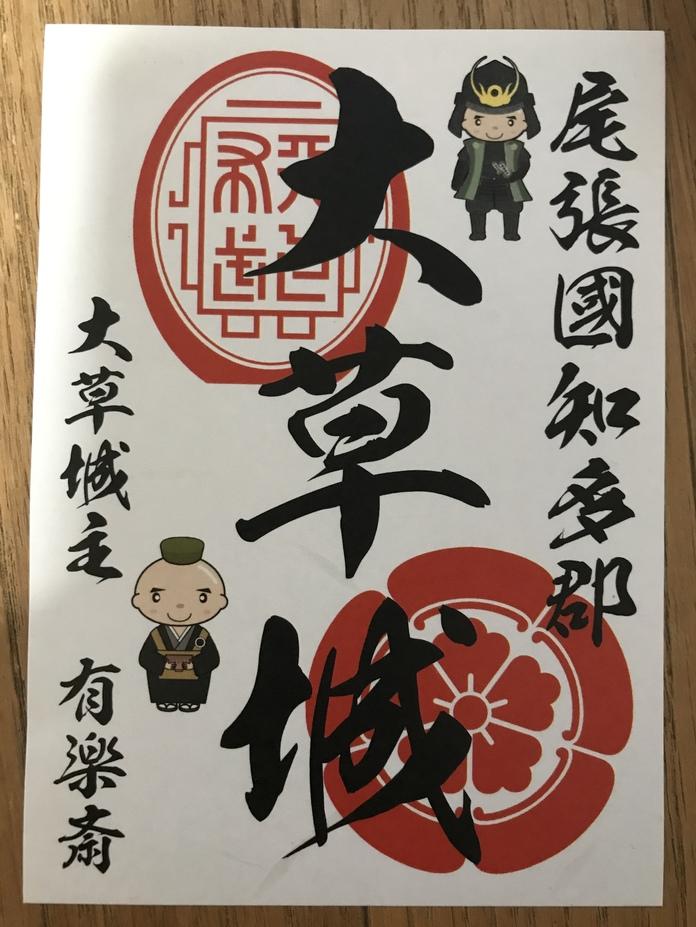 尾張國知多郡
大草城
大草城主 有楽斎